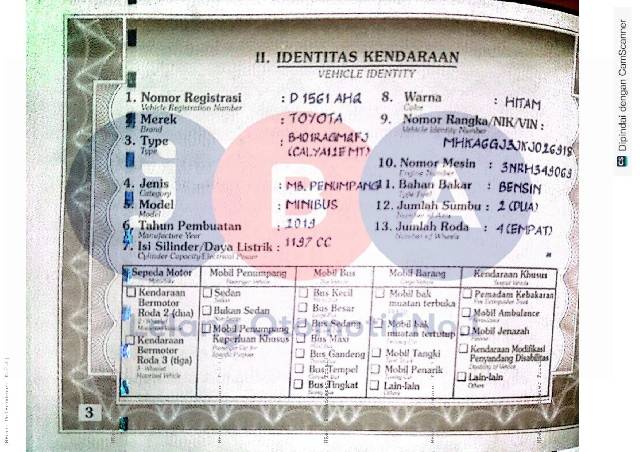 II. IDENTITAS KENDARAAN
VEHICLE IDENTITY
1. Nomor Registrasi : D 1561 AHQ
Vehicle Registration Number
2. Merek : TOYOTA
Brand
3. Type
Type
(CALYA 1.2 E MT)
4. Jenis : MB. PENUMPANG
Category
5. Model : MINIBUS
Model
6. Tahun Pembuatan : 2019
Manufacture Year
7. Isi Silinder/Daya Listrik : 1197 CC
Cylinder Capacity/Electrical Power
8. Warna : HITAM
Color
9. Nomor Rangka/NIK/VIN :
Vehicle Identity Number
10. Nomor Mesin :
Engine Number
11. Bahan Bakar : BENSIN
Type Fuel
12. Jumlah Sumbu : 2 (DUA)
Number of Axis
13. Jumlah Roda : 4 (EMPAT)
Number of Wheels
Sepeda Motor
Kendaraan Bermotor Roda 2 (dua)
Kendaraan Bermotor Roda 3 (tiga)
Mobil Penumpang
Sedan
Bukan Sedan
Mobil Penumpang Keperluan Khusus
Mobil Bus
Bus Kecil
Bus Besar
Bus Sedang
Bus Maxi
Bus Gandeng
Bus Tempel
Bus Tingkat
Mobil Barang
Mobil bak muatan terbuka
Mobil bak muatan tertutup
Mobil Tangki
Mobil Penarik
Lain-lain
Kendaraan Khusus
Pemadam Kebakaran
Mobil Ambulance
Mobil Jenazah
Kendaraan Modifikasi Penyandang Disabilitas
Lain-lain
3
JBA
Dipindai dengan CamScanner